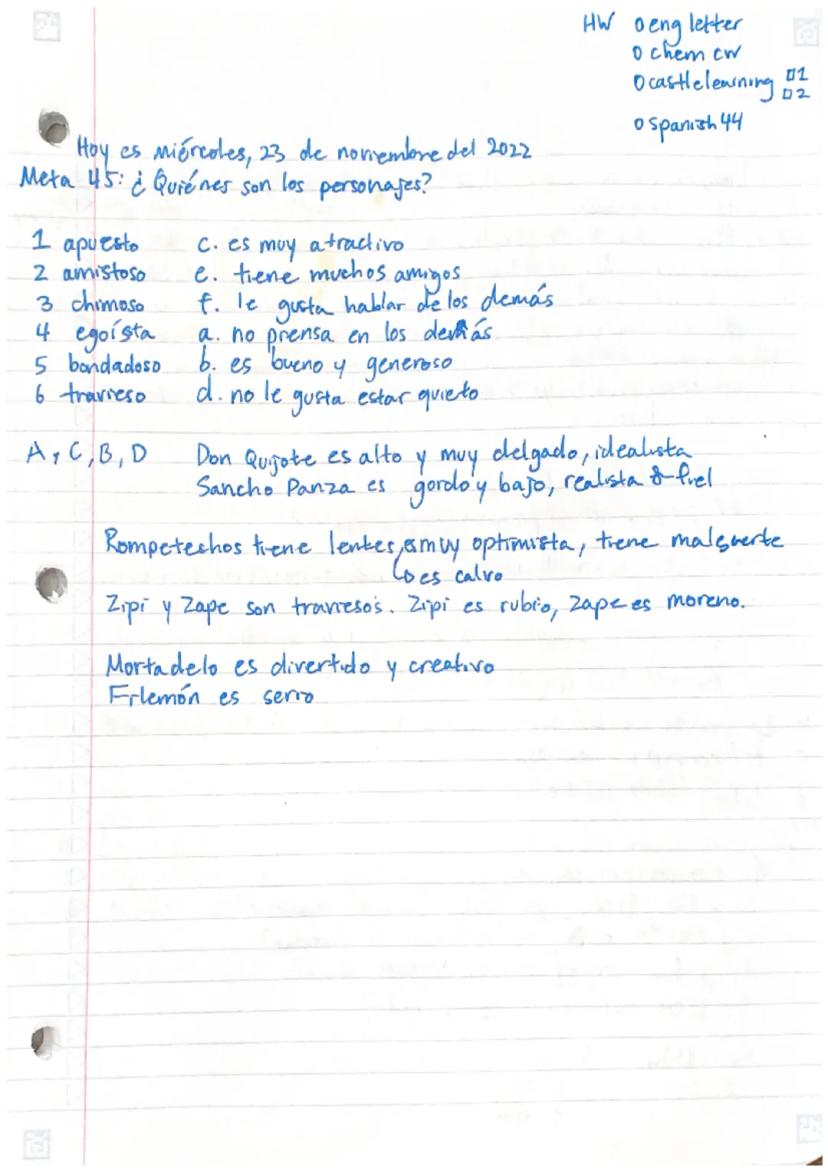 HW o eng letter
o chem cw
o castle learning □1
□2
o spanish 44
Hoy es miércoles, 23 de noviembre del 2022
Meta 45: ¿Quiénes son los personajes?
1 apuesto c. es muy atractivo
2 amistoso e. tiene muchos amigos
3 chimoso f. le gusta hablar de los demás
4 egoísta a. no piensa en los demás
5 bondadoso b. es bueno y generoso
6 travieso d. no le gusta estar quieto
A, C, B, D Don Quijote es alto y muy delgado, idealista
Sancho Panza es gordo y bajo, realista & fiel
Rompeteshos tiene lentes, es muy optimista, tiene mal suerte
↳ es calvo
Zipi y Zape son traviesos. Zipi es rubio, Zape es moreno.
Mortadelo es divertido y creativo
Filemón es serio